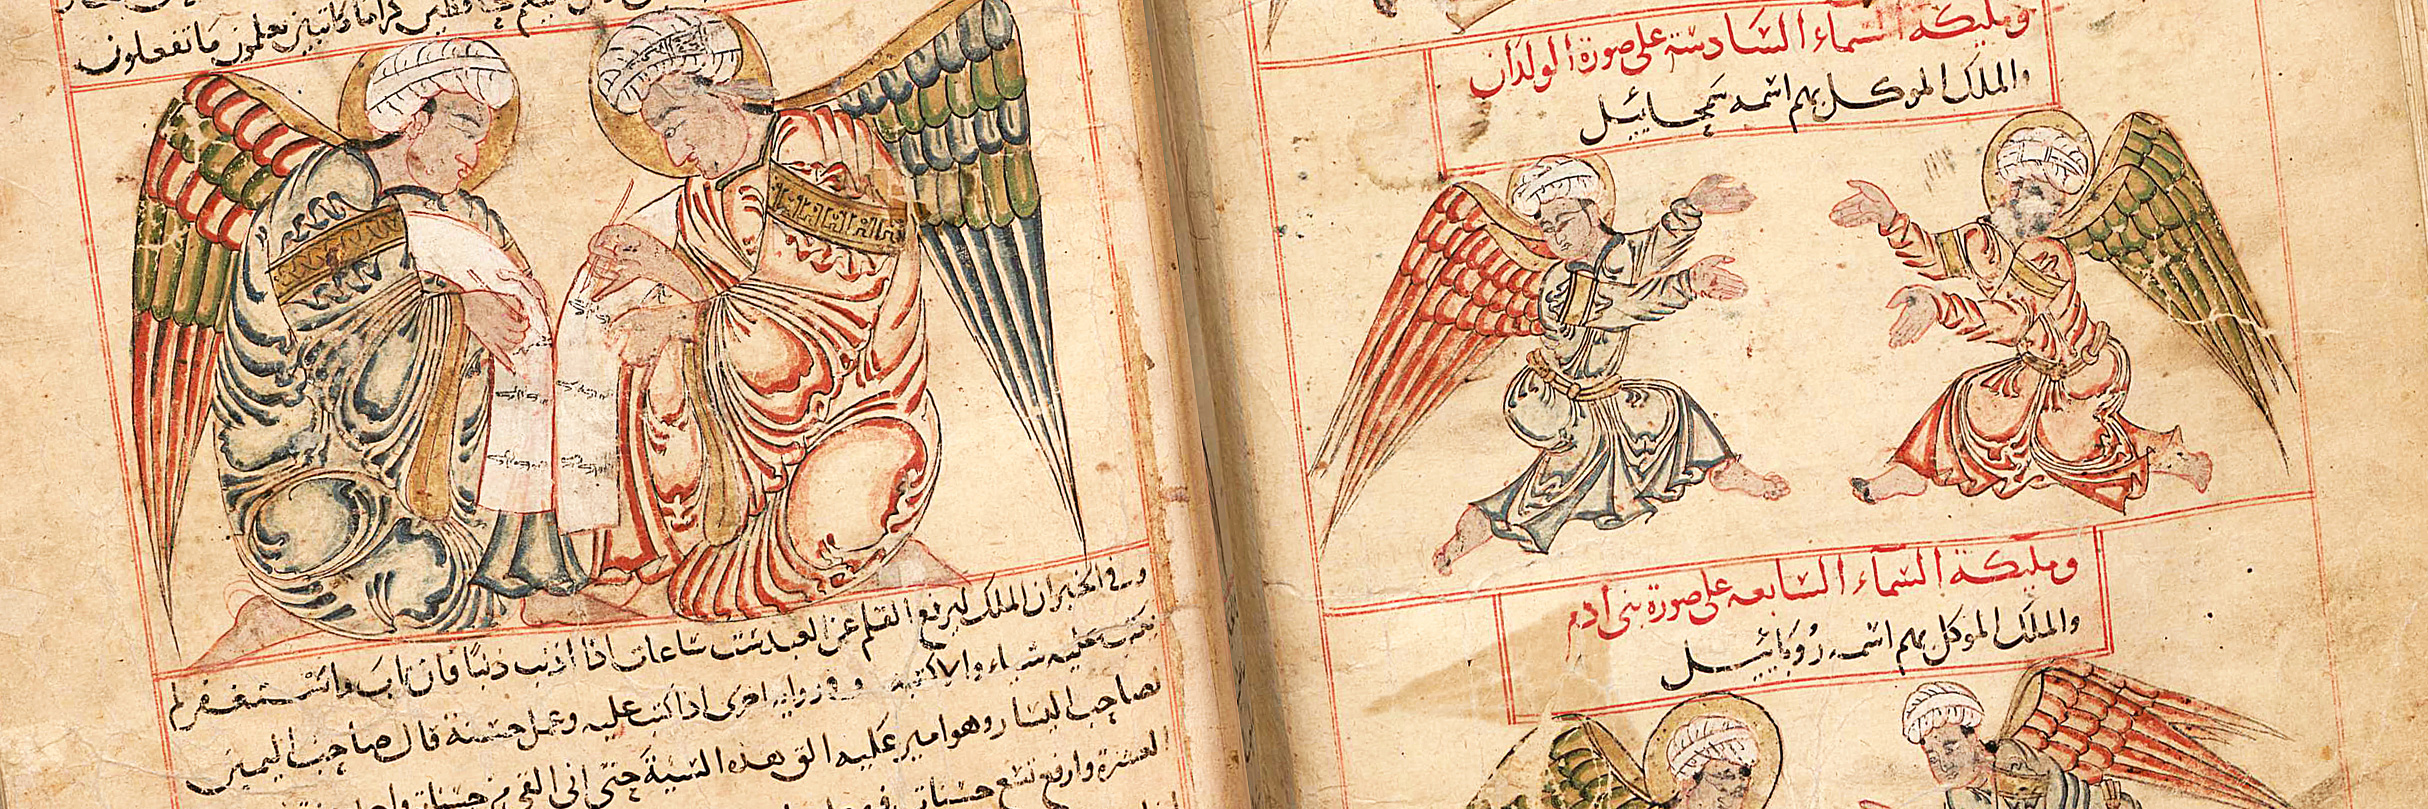 كراما كاتبين يعلمون ما تفعلون
وفي الخبر ان الملك ليرفع القلم عن العبد ست ساعات اذا اذنب ذنبا فان تاب واستغفر لم
يكتب عليه شياء والا كتبه وفي رواية اخرى اذا كتب عليه وعمل حسنة قال صاحب اليمين
لصاحب اليسار وهو امير عليه الق هذه السيئة حتى القي من حسناته
العشرة وارفع تسع حسنات
ومليكة السماء السادسة على صورة الولدان
والملك الموكل بهم اسمه سمحائيل
ومليكة السماء السابعة على صورة بني ادم
والملك الموكل بهم اسمه روبائيل